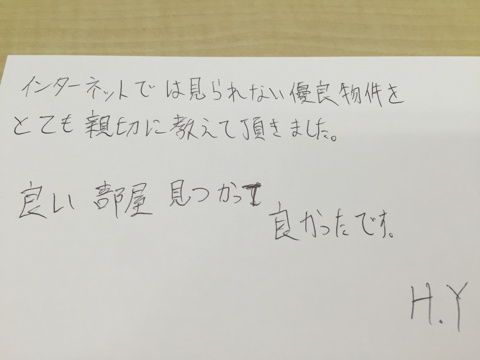 インターネットでは見られない優良物件を
とても親切に教えて頂きました。
良い部屋見つかって
良かったです。
H.Y